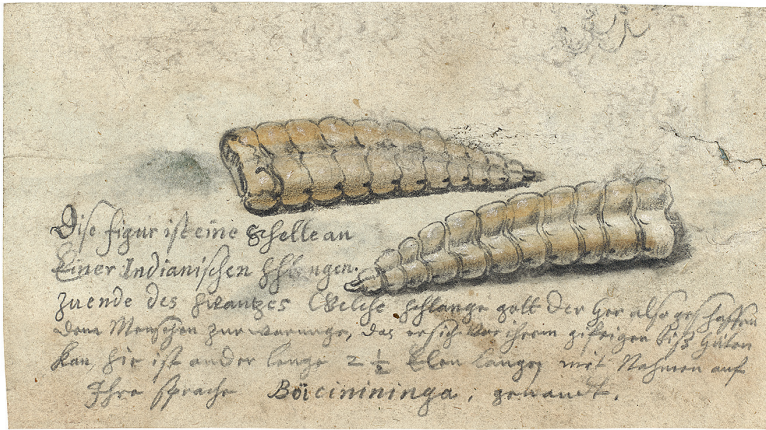 Dise figur ist eine Schelle an
Einer Indianischen Schlangen.
zu ende des swantzes Welche schlange gott der Her also geschaffen
dem Menschen zur warnunge, das er sich vor ihrem gifftigen biß hüten
kan, sie ist an der lenge 2 ½ Elen lang, mit Nahmen auf
Ihre sprache Boicinininga, genandt.